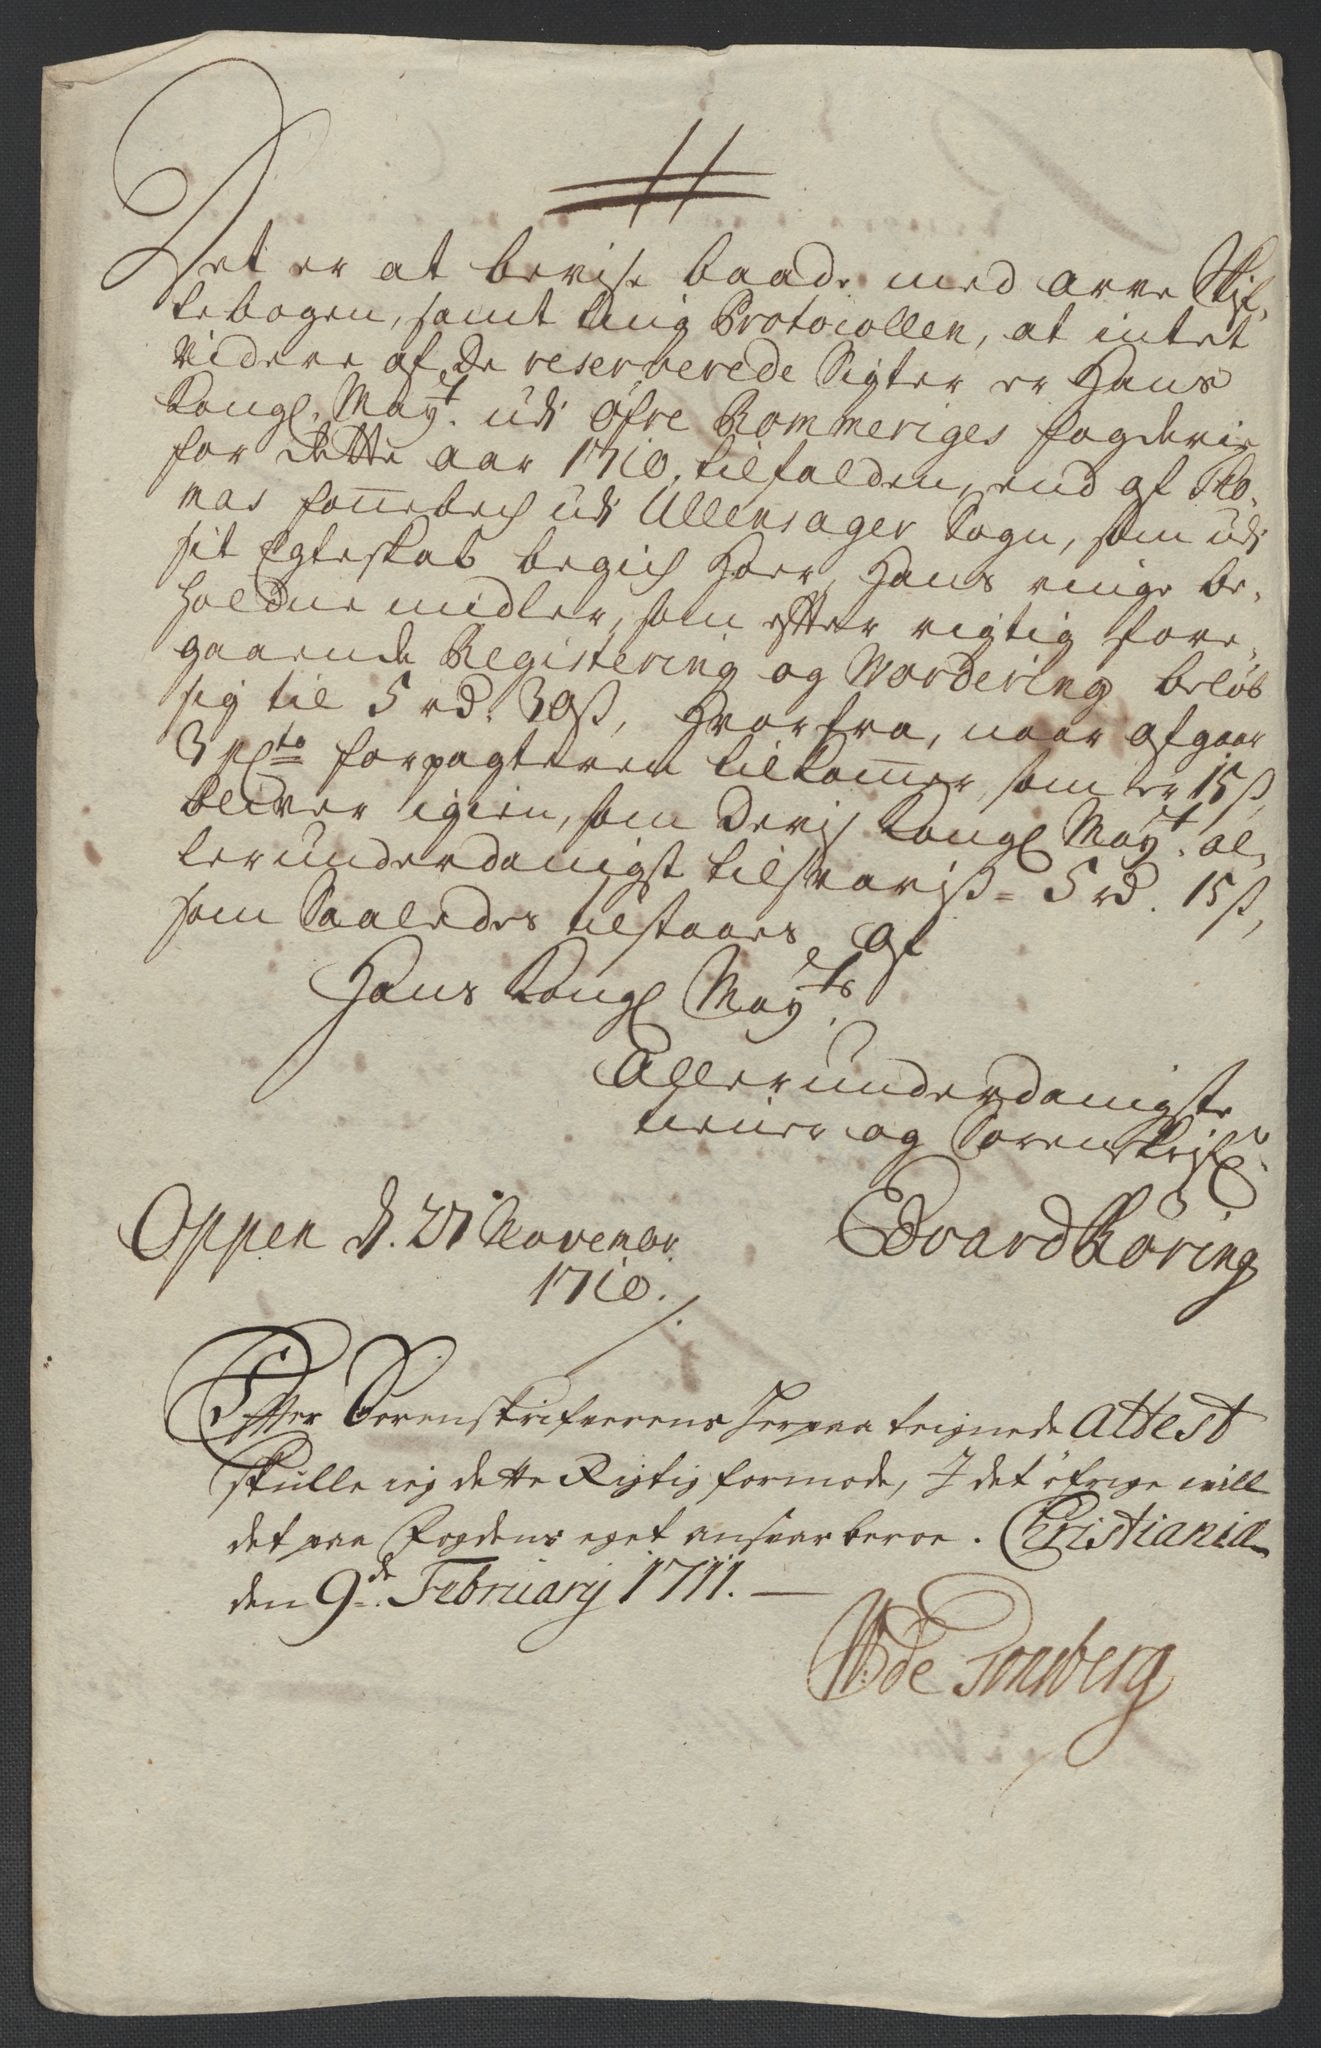 Det er at bevise baade med arve Skif-
tebogen, samt ting Protocollen, at intet
videre af de reserverede Sigter er Hans
Kongl. Mayt. udi Øfre Rommeriges fogderie
for dette aar 1710. tilfalden, end af Tho-
mas fonnebech udi Ullensager Sogn, som udi
sit Egteskab begich Hoer, Hans ringe be-
holdne midler, som efter rigtig fore-
gaaende Registering og Vordering beløb
sig til 5 rd. 30ß, Hvorfra, naar afgaar
3 pCto forpagteren tilkommer, som er 15ß,
bliver igien, som deris Kongl Mayt. al-
lerunderdanigst tilsvariß = 5 rd. 15ß,
som Saaledes tilstaaes af
Hans Kongl Mayts.
Allerunderdanigste
tiener og Sorenskrifver
Oppen d. 27 Novembr.
Edvard Röring
1710.
Effter Sorenskrifverens herpaa teignede Attest
skulle ieg dette Rigtig formode, I det öfrige will
det paa Fogdens eget ansvar beroe. Christiania
den 9de. February 1711.
W de Tonsberg